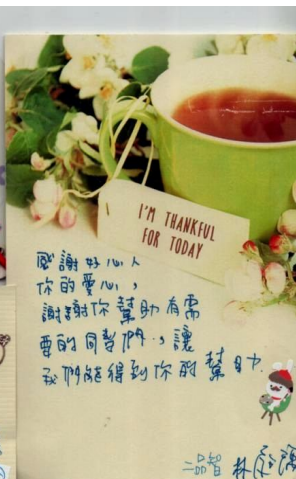 I'M THANKFUL
FOR TODAY
感謝好心人
你的愛心，
謝謝你幫助有需
要的同學們，讓
我們能得到你的幫助.
二品智 林